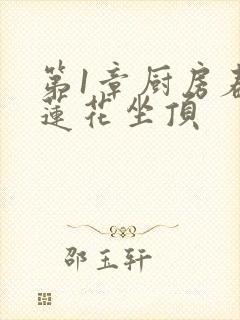 第1章厨房春
莲花坐顶
邵玉轩